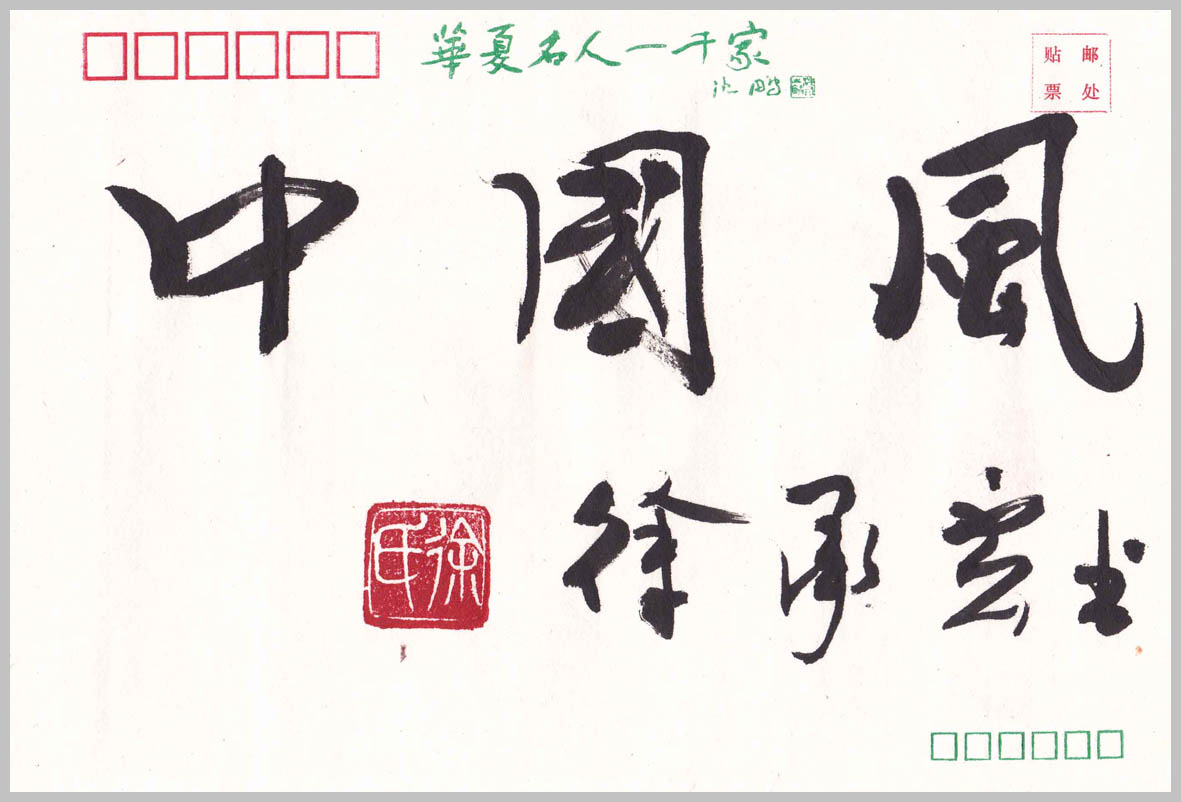 華夏名人一千家
沈鹏
贴邮
票处
中國風
徐承雲书
徐氏